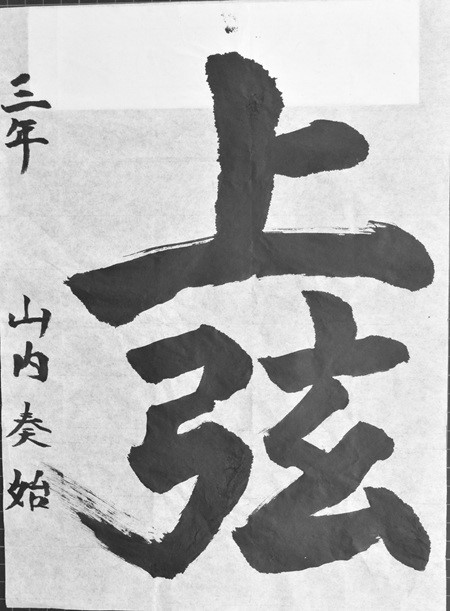 上弦
三年 山内奏始